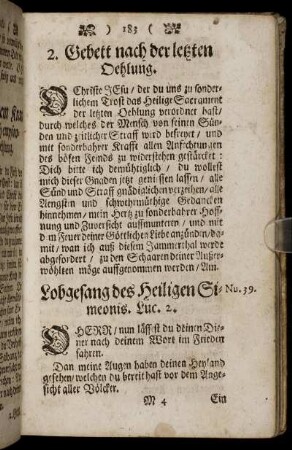 ) 183 (
2. Gebett nach der letzten
Oehlung.
O Christe JEsu / der du uns zu sonder-
lichem Trost das Heilige Sacrament
der letzten Oehlung verordnet hast /
durch welches der Mensch von seinen Sün-
den und zeitlicher Straff wird befreyet / und
mit sonderbahrer Krafft allen Anfechtungen
des bösen Feinds zu widerstehen gestärcket:
Dich bitte ich demüthiglich / du wollest
mich dieser Gnaden jetzt geniessen lassen / alle
Sünd und Straff gnädiglichen verzeyhen / alle
Aengsten und schwermüthige Gedancken
hinnehmen / mein Hertz zu sonderbahrer Hoff-
nung und Zuversicht auffmuntern / und mit
dem Feuer deiner Göttlichen Liebe anzünden / da-
mit / wan ich auß diesem Jammerthal werde
abgefordert / zu den Schaaren deiner Außer-
wöhlten möge auffgenommen werden / Am.
Lobgesang des Heiligen Si- Nu. 39.
meonis. Luc. 2.
O HERR / nun lässest du deinen Die-
ner nach deinem Wort im Frieden
fahren.
Dan meine Augen haben deinen Heyland
gesehen / welchen du bereit hast vor dem Ange-
sicht aller Völcker.
M 4 Ein